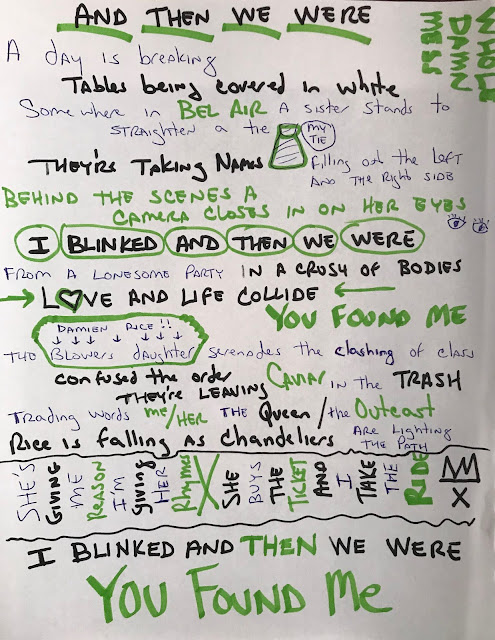 AND THEN WE WERE
WHOLE DAMN MESS
A day is breaking
Tables being covered in white
Somewhere in BEL AIR A sister stands to
STRAIGHTEN a tie
MY TIE
THEY'RS TAKING NAMES filling out the left
AND THE Right SIDE
BEHIND THE SCENES A
CAMERA CLOSES IN ON HER EYES
I BLINKED AND THEN WE WERE
FROM A LONESOME PARTY IN A CRUSH OF BODIES
LOVE AND LIFE COLLIDE
YOU FOUND ME
DAMIEN RICE!!
THE Blowers daughter serenades the clashing of class
confused the order
THEY'RE LEAVING CAViAR IN the TRASH
Trading words me/HER THE Queen/the Outcast
Rice is falling as Chandeliers ARE LIGHTING
THE PATH
SHE'S GIVING ME REASON I'M giving HER Rhymes
SHE BUYS THE TICKET AND I TAKE THE RIDE
X
I BLINKED AND THEN WE WERE
YOU FOUND Me